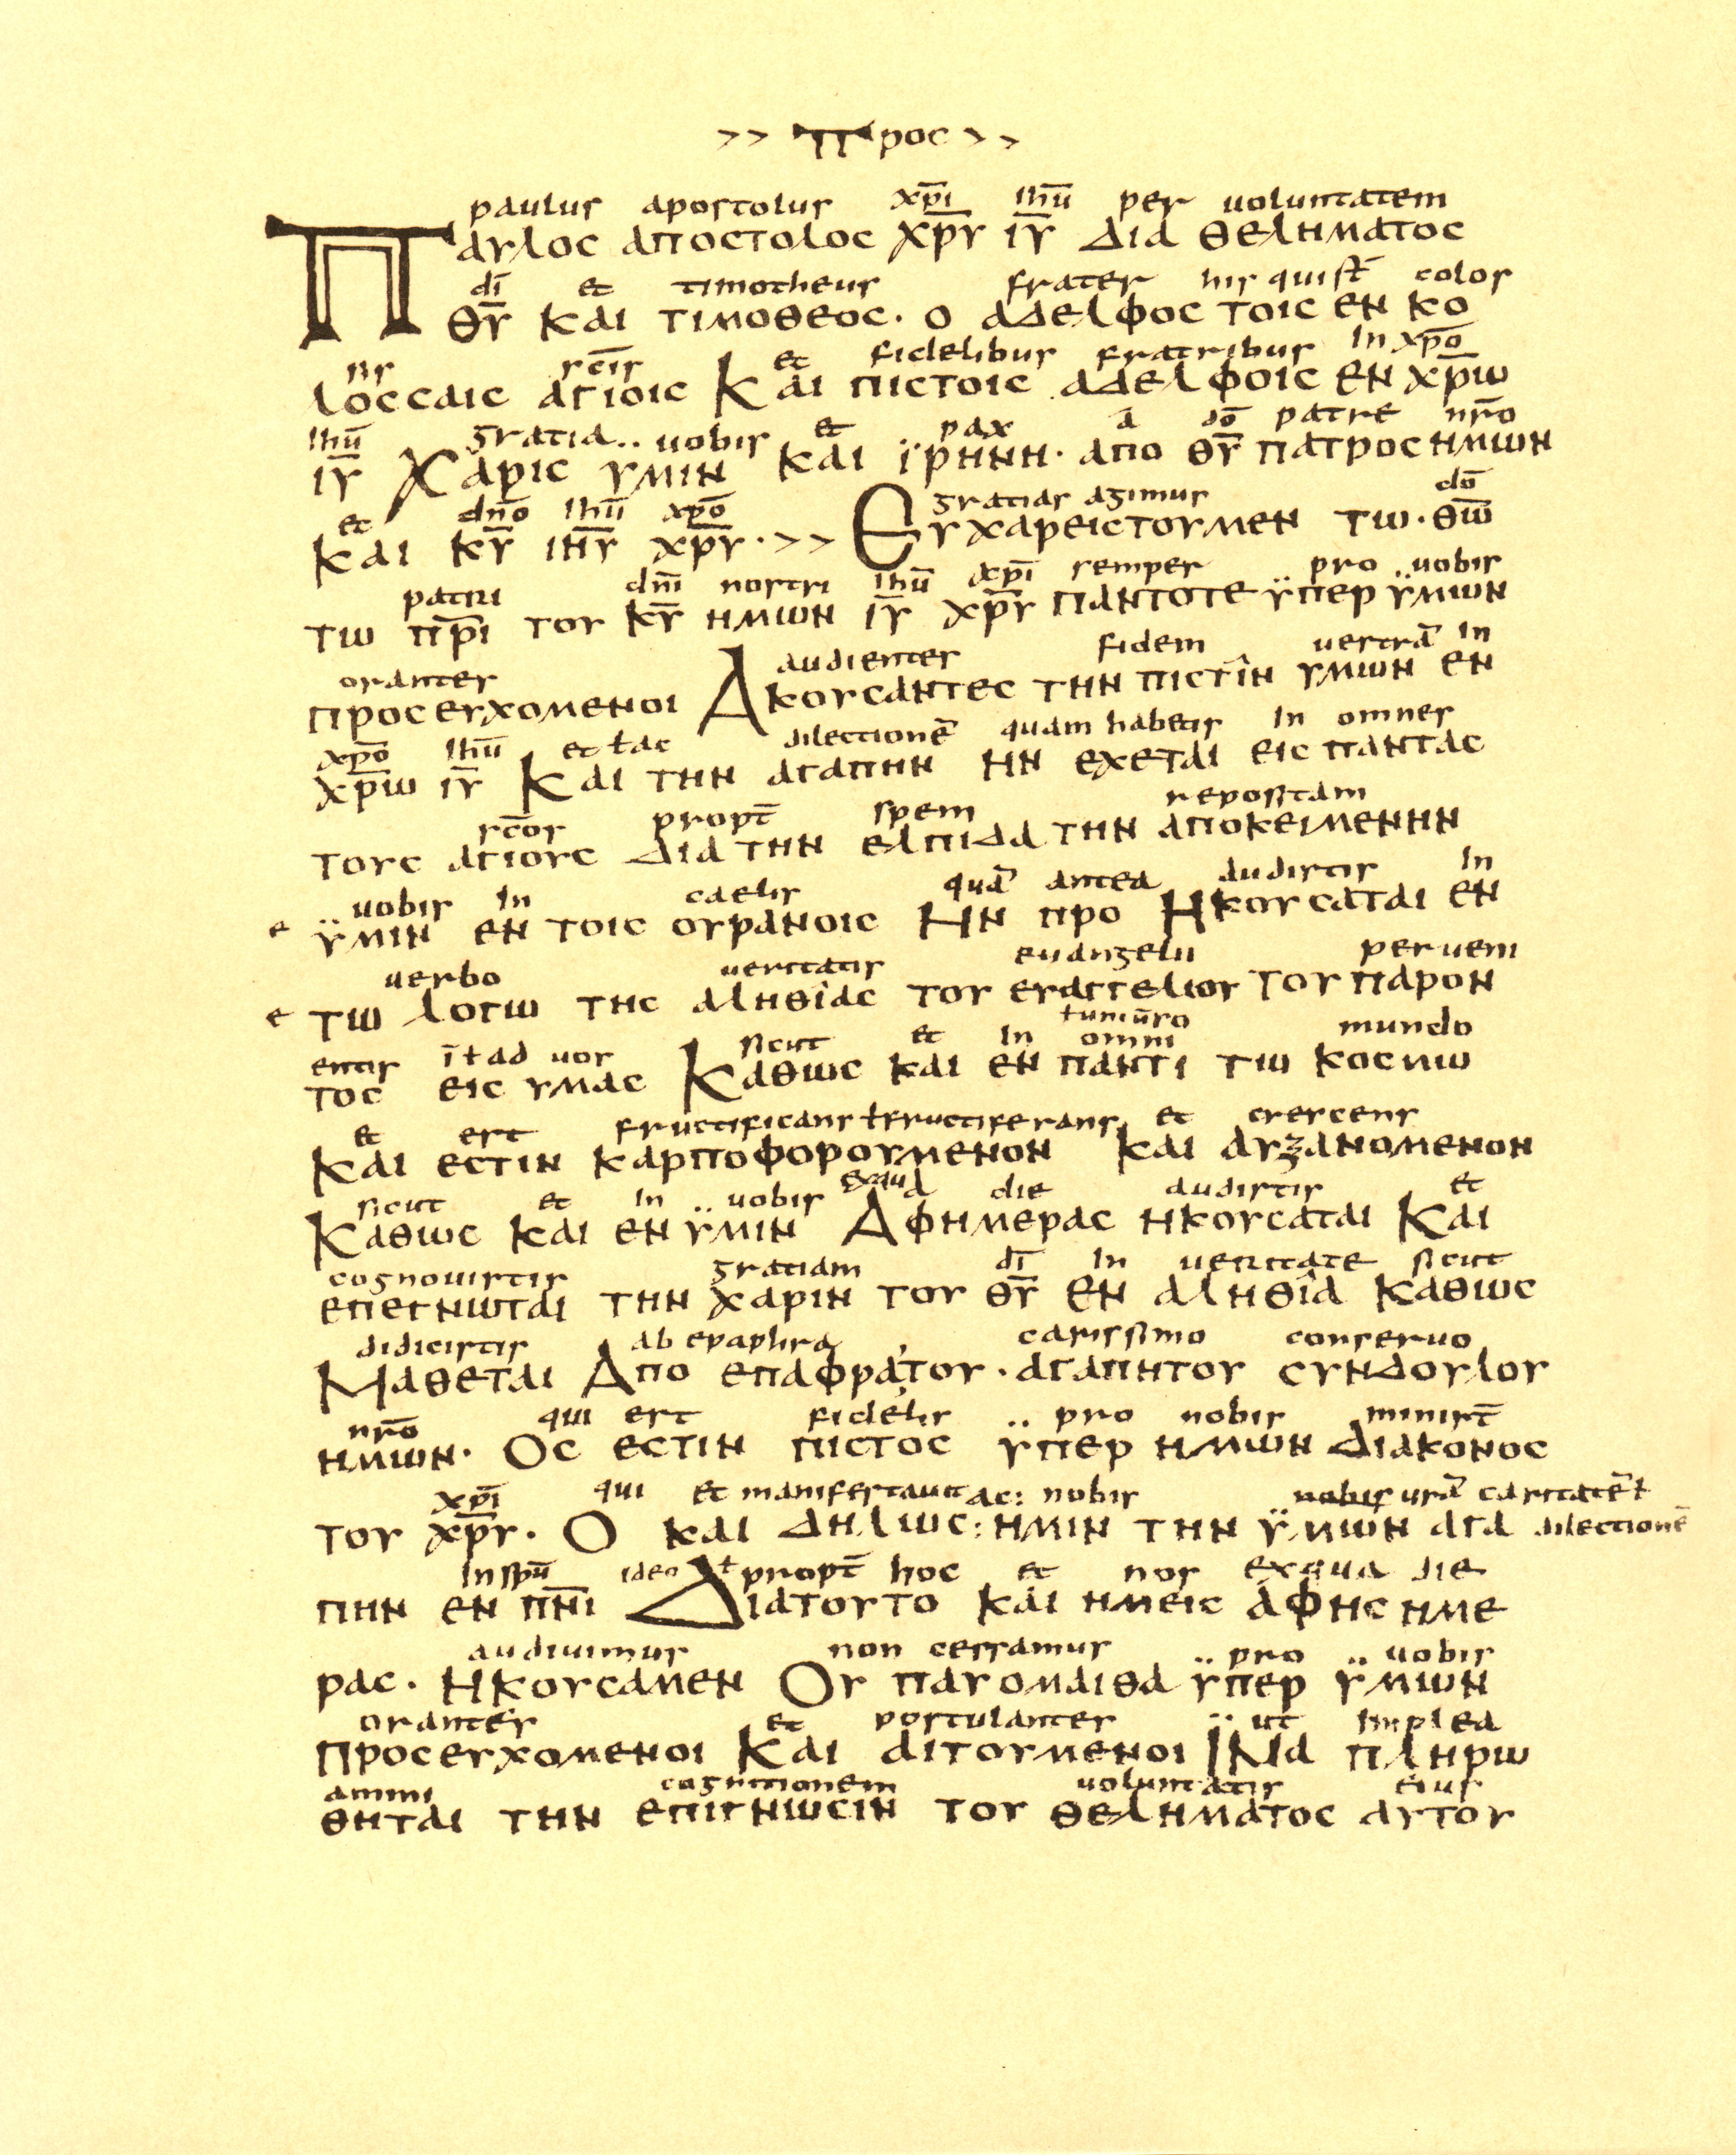 >> Προς >>
paulus apostolus xp̄i ihū per uoluntatem
Παυλος αποστολος χρ̄υ ιῡ δια θεληματος
dī et timotheus frater his quis̄t colos
θῡ και τιμοθεος· ο αδελφος τοις εν κο
sis sc̄is et fidelibus fratribus in xp̄o
λοσσαις αγιοις Και πιστοις αδελφοις εν χρ̄ω
ihū gratia uobis et pax ā dō patre nr̄o
ιῡ Χαρις υμιν και ϊρηνη· απο θῡ πατρος ημων
et dn̄o ihū xp̄o gratias agimus dō
και κῡ ιη̄υ χρ̄υ·>> Ευχαρειστουμεν τω·θω̄
patri dn̄i nostri ihū xp̄i semper pro uobis
τω πρ̄ι του κῡ ημων ιῡ χρ̄υ παντοτε ϋπερ ϋμων
orantes audientes fidem uestrā in
προσευχομενοι Ακουσαντες την πιστιν υμων εν
xp̄o ihū et ł ac dilectionē quam habetis in omnes
χρ̄ω ιῡ Και την αγαπην Ην εχεται εις παντας
sc̄os propt̄ spem repositam
τους αγιους δια την ελπιδα την αποκειμενην
uobis in caelis quā antea audistis in
e ϋμιν εν τοις ουρανοις Ην προ Ηκουσαται εν
uerbo ueritatis euangelii peruem
e τω λογω της αληθιας του ευαγγελιου του παρον
entis ī ł ad uos sicut et in omni ł uniūso mundo
τος εις υμας Καθως και εν παντι τω κοσμω
et est fructificans ł fructiferans et crescens
και εστιν καρποφορουμενον και αυξανομενον
sicut et in uobis ex qua die audistis et
Καθως και εν ϋμιν Αφημερας ηκουσαται Και
cognouistis gratiam dī in ueritate sicut
επεγνωται την χαριν του θῡ εν αληθια καθως
didicistis ab epaphra carissimo conseruo
Μαθεται Απο επαφρατου·αγαπητου συνδουλου
nr̄o qui est fidelis pro nobis minist̄
ημων· Ος εστιν πιστος ϋπερ ημων διακονος
xp̄i qui et manifestauit ac: nobis nobis urā caritatē ł
του χρ̄υ· Ο και δηλωσ:ημιν την ϋμων αγα dilectionē
in spū ideo ł propt̄ hoc et nos ex qua die
πην εν πν̄ι Διατουτο και ημεις αφης ημε
audiuimus non cessamus pro uobis
ρας· Ηκουσαμεν Ου παυομαιθα ϋπερ ϋμων
orantes et postulantes ut implea
προσευχομενοι Και αιτουμενοι ΪΝα πληρω
amini cognitionem uoluntatis eius
θηται την επιγνωσιν του θεληματος αυτου